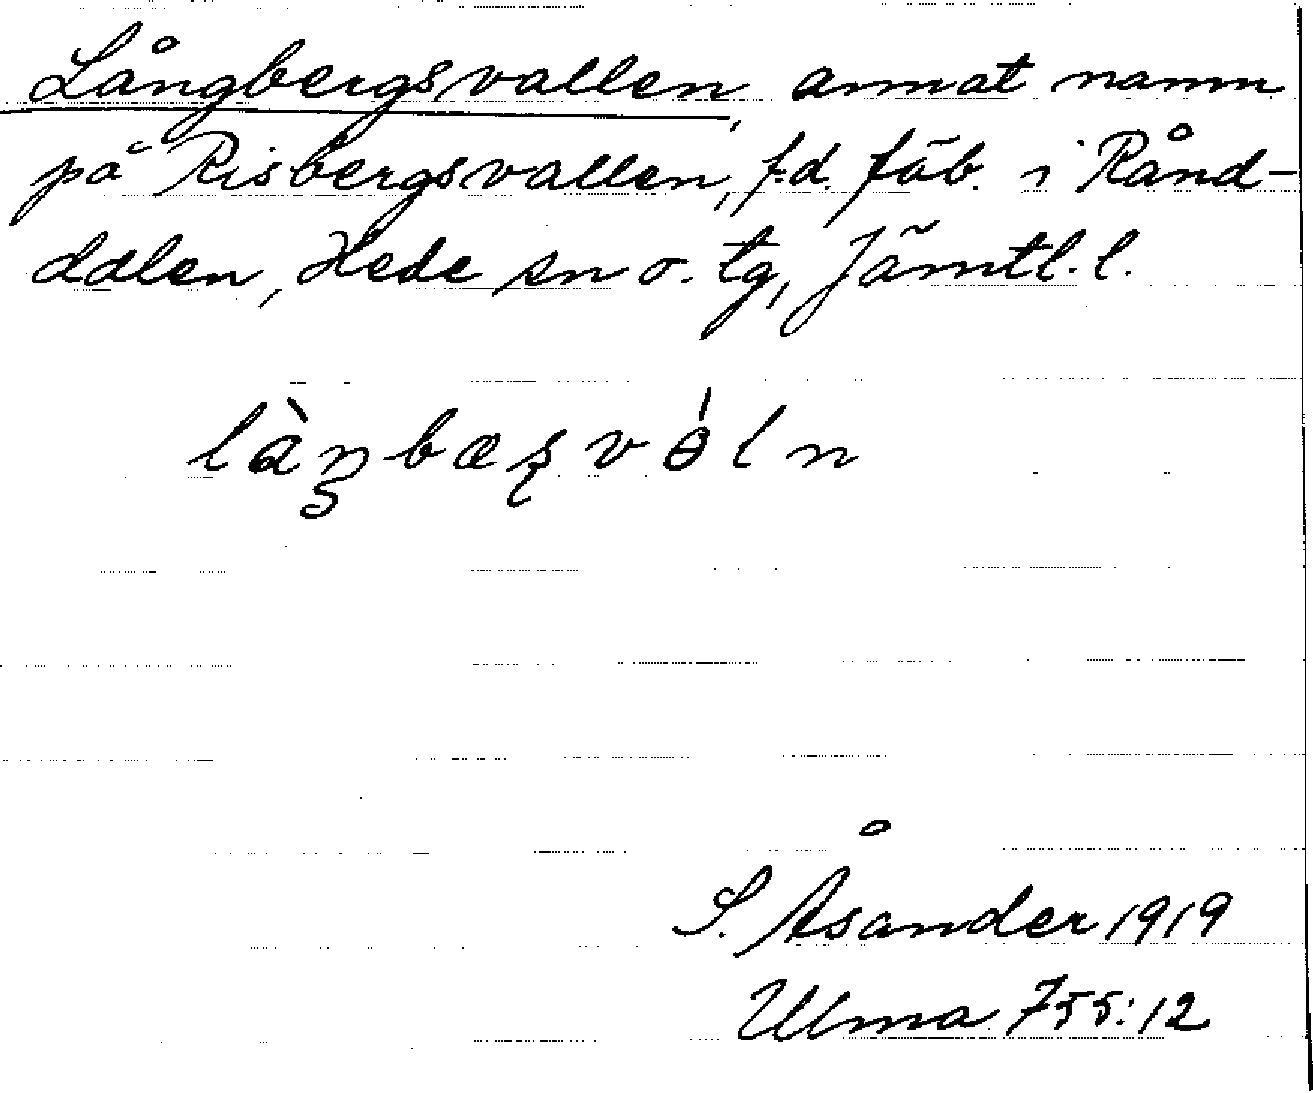 Långbergsvallen, annat namn
på Risbergsvallen, f.d. fäb. i Rånd-
dalen, Hede sn o. tg, Jämtl. l.
S. Åsander 1919
Ulma 755:12